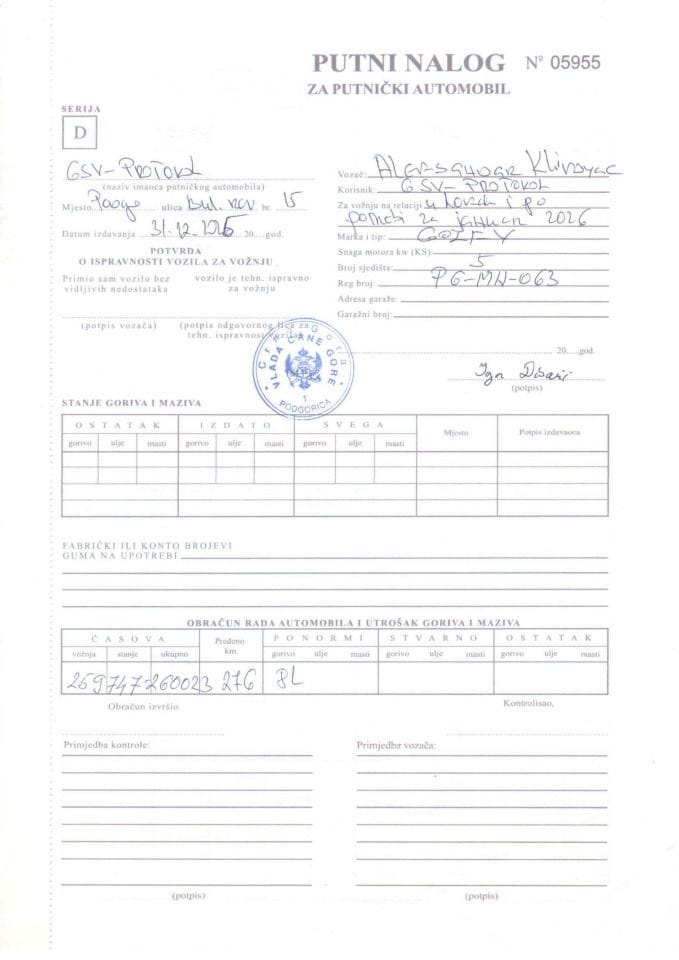 PUTNI NALOG Nº 05955
ZA PUTNIČKI AUTOMOBIL
SERIJA
D
GSV-PROTOKOL
(naziv imaoca putničkog automobila)
Mjesto ulica Bul. rev br. 15
Datum izdavanja 31-12.1025 20....god.
POTVRDA
O ISPRAVNOSTI VOZILA ZA VOŽNJU
Primio sam vozilo bez vidljivih nedostataka
vozilo je tehn. ispravno za vožnju
(potpis vozača)
(potpis odgovornog lica za tehn. ispravnost vozila)
Vozač: Aleksandar
Korisnik: GSV-PROTOKOL
Za vožnju na relaciji u i po
potrebi za 2026
Marka i tip: GOLF V
Snaga motora kw (KS):
Broj sjedišta: 5
Reg broj: PG-MN-063
Adresa garaže:
Garažni broj:
20.....god.
(potpis)
Crna Gora
VLADA CRNE GORE
1
PODGORICA
STANJE GORIVA I MAZIVA
OSTATAK IZDATO SVEGA Mjesto Potpis izdavaoca
gorivo ulje masti gorivo ulje masti gorivo ulje masti
FABRIČKI ILI KONTO BROJEVI
GUMA NA UPOTREBI
OBRAČUN RADA AUTOMOBILA I UTROŠAK GORIVA I MAZIVA
ČASOVA Pređeno km. PO NORMI STVARNO OSTATAK
vožnja stanje ukupno gorivo ulje masti gorivo ulje masti gorivo ulje masti
259747-260023 276 8L
Obračun izvršio
Kontrolisao,
Primjedba kontrole:
Primjedba vozača:
(potpis)
(potpis)